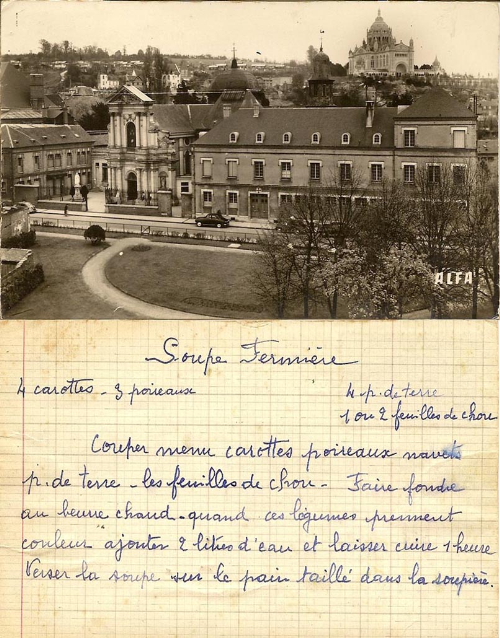 ALFA
Soupe Fermière
4 carottes - 3 poireaux 4 p. de terre
1 ou 2 feuilles de chou
Couper menu carottes poireaux navets
p. de terre - les feuilles de chou - Faire fondre
au beurre chaud - quand ces légumes prennent
couleur ajouter 2 litres d'eau et laisser cuire 1 heure
Verser la soupe sur le pain taillé dans la soupière.